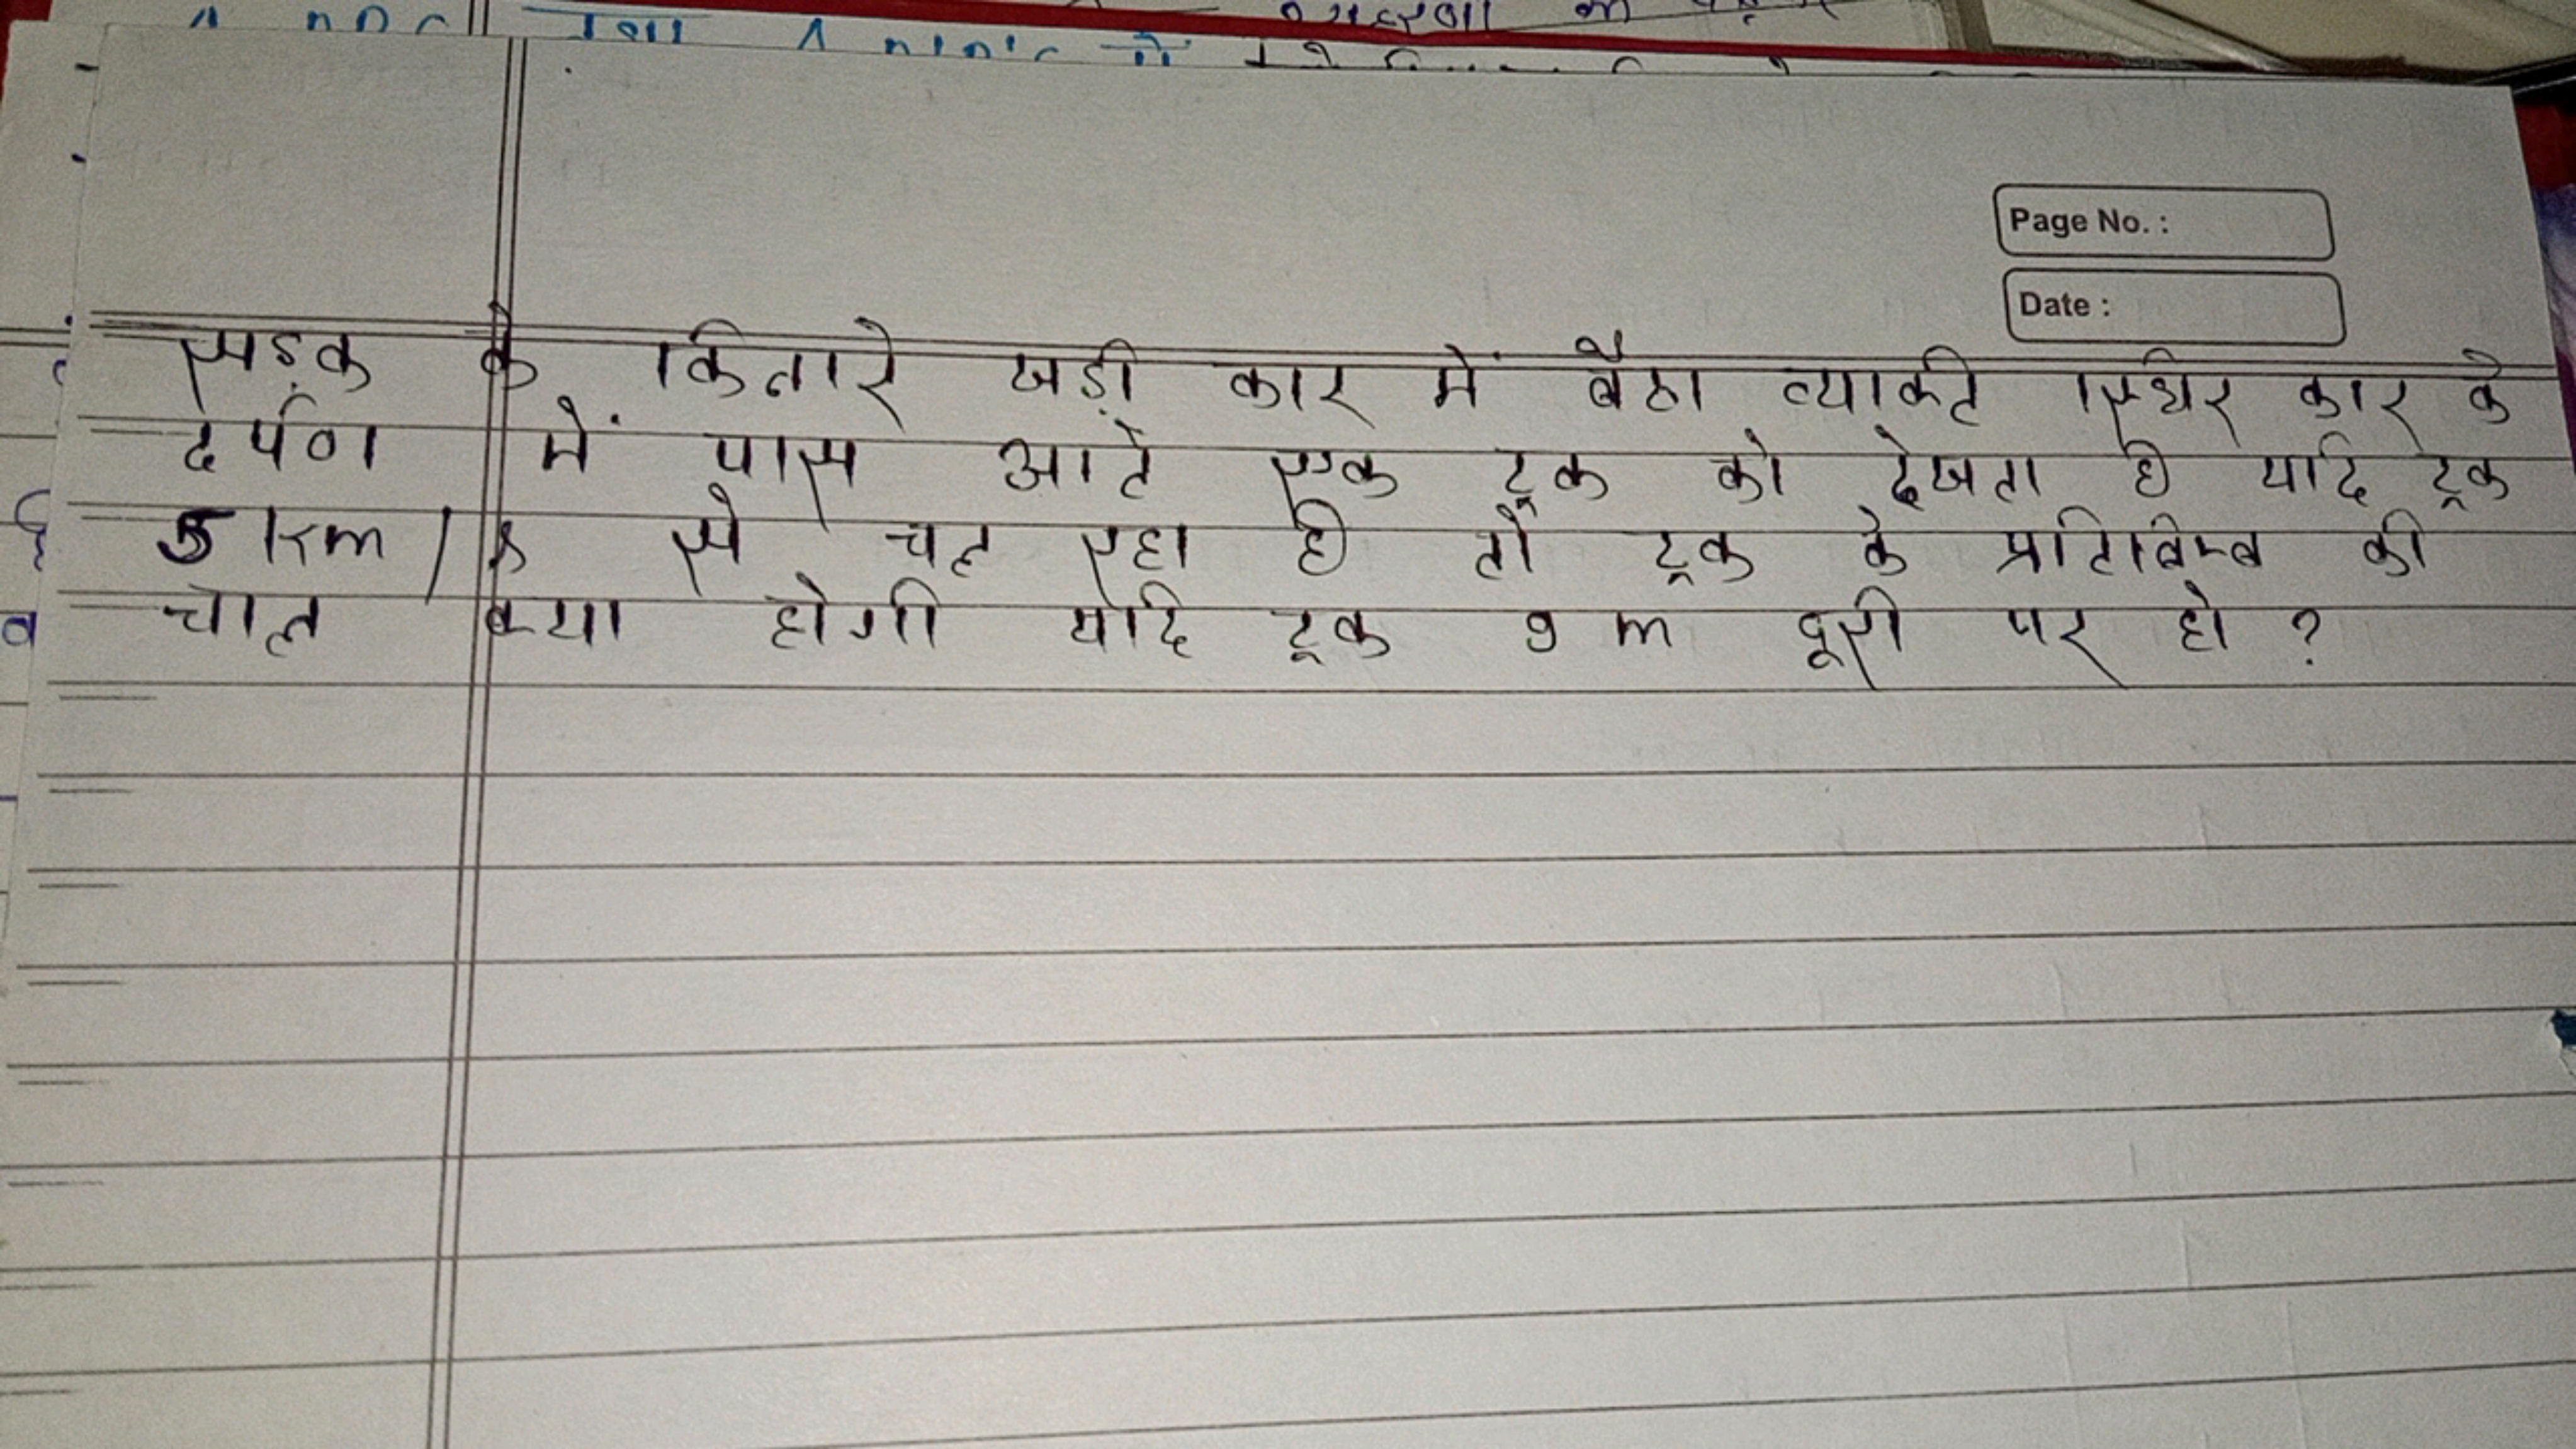 Page No. :
Date :
सड़क के किनारे खड़ी कार में बैठा व्यक्ति स्थिर कार के
दर्पण में पास आते एक ट्रक को देखता है यदि ट्रक
5 km/s से चल रहा है तो ट्रक के प्रतिबिम्ब की
चाल क्या होगी यदि ट्रक 9 m दूरी पर हो ?